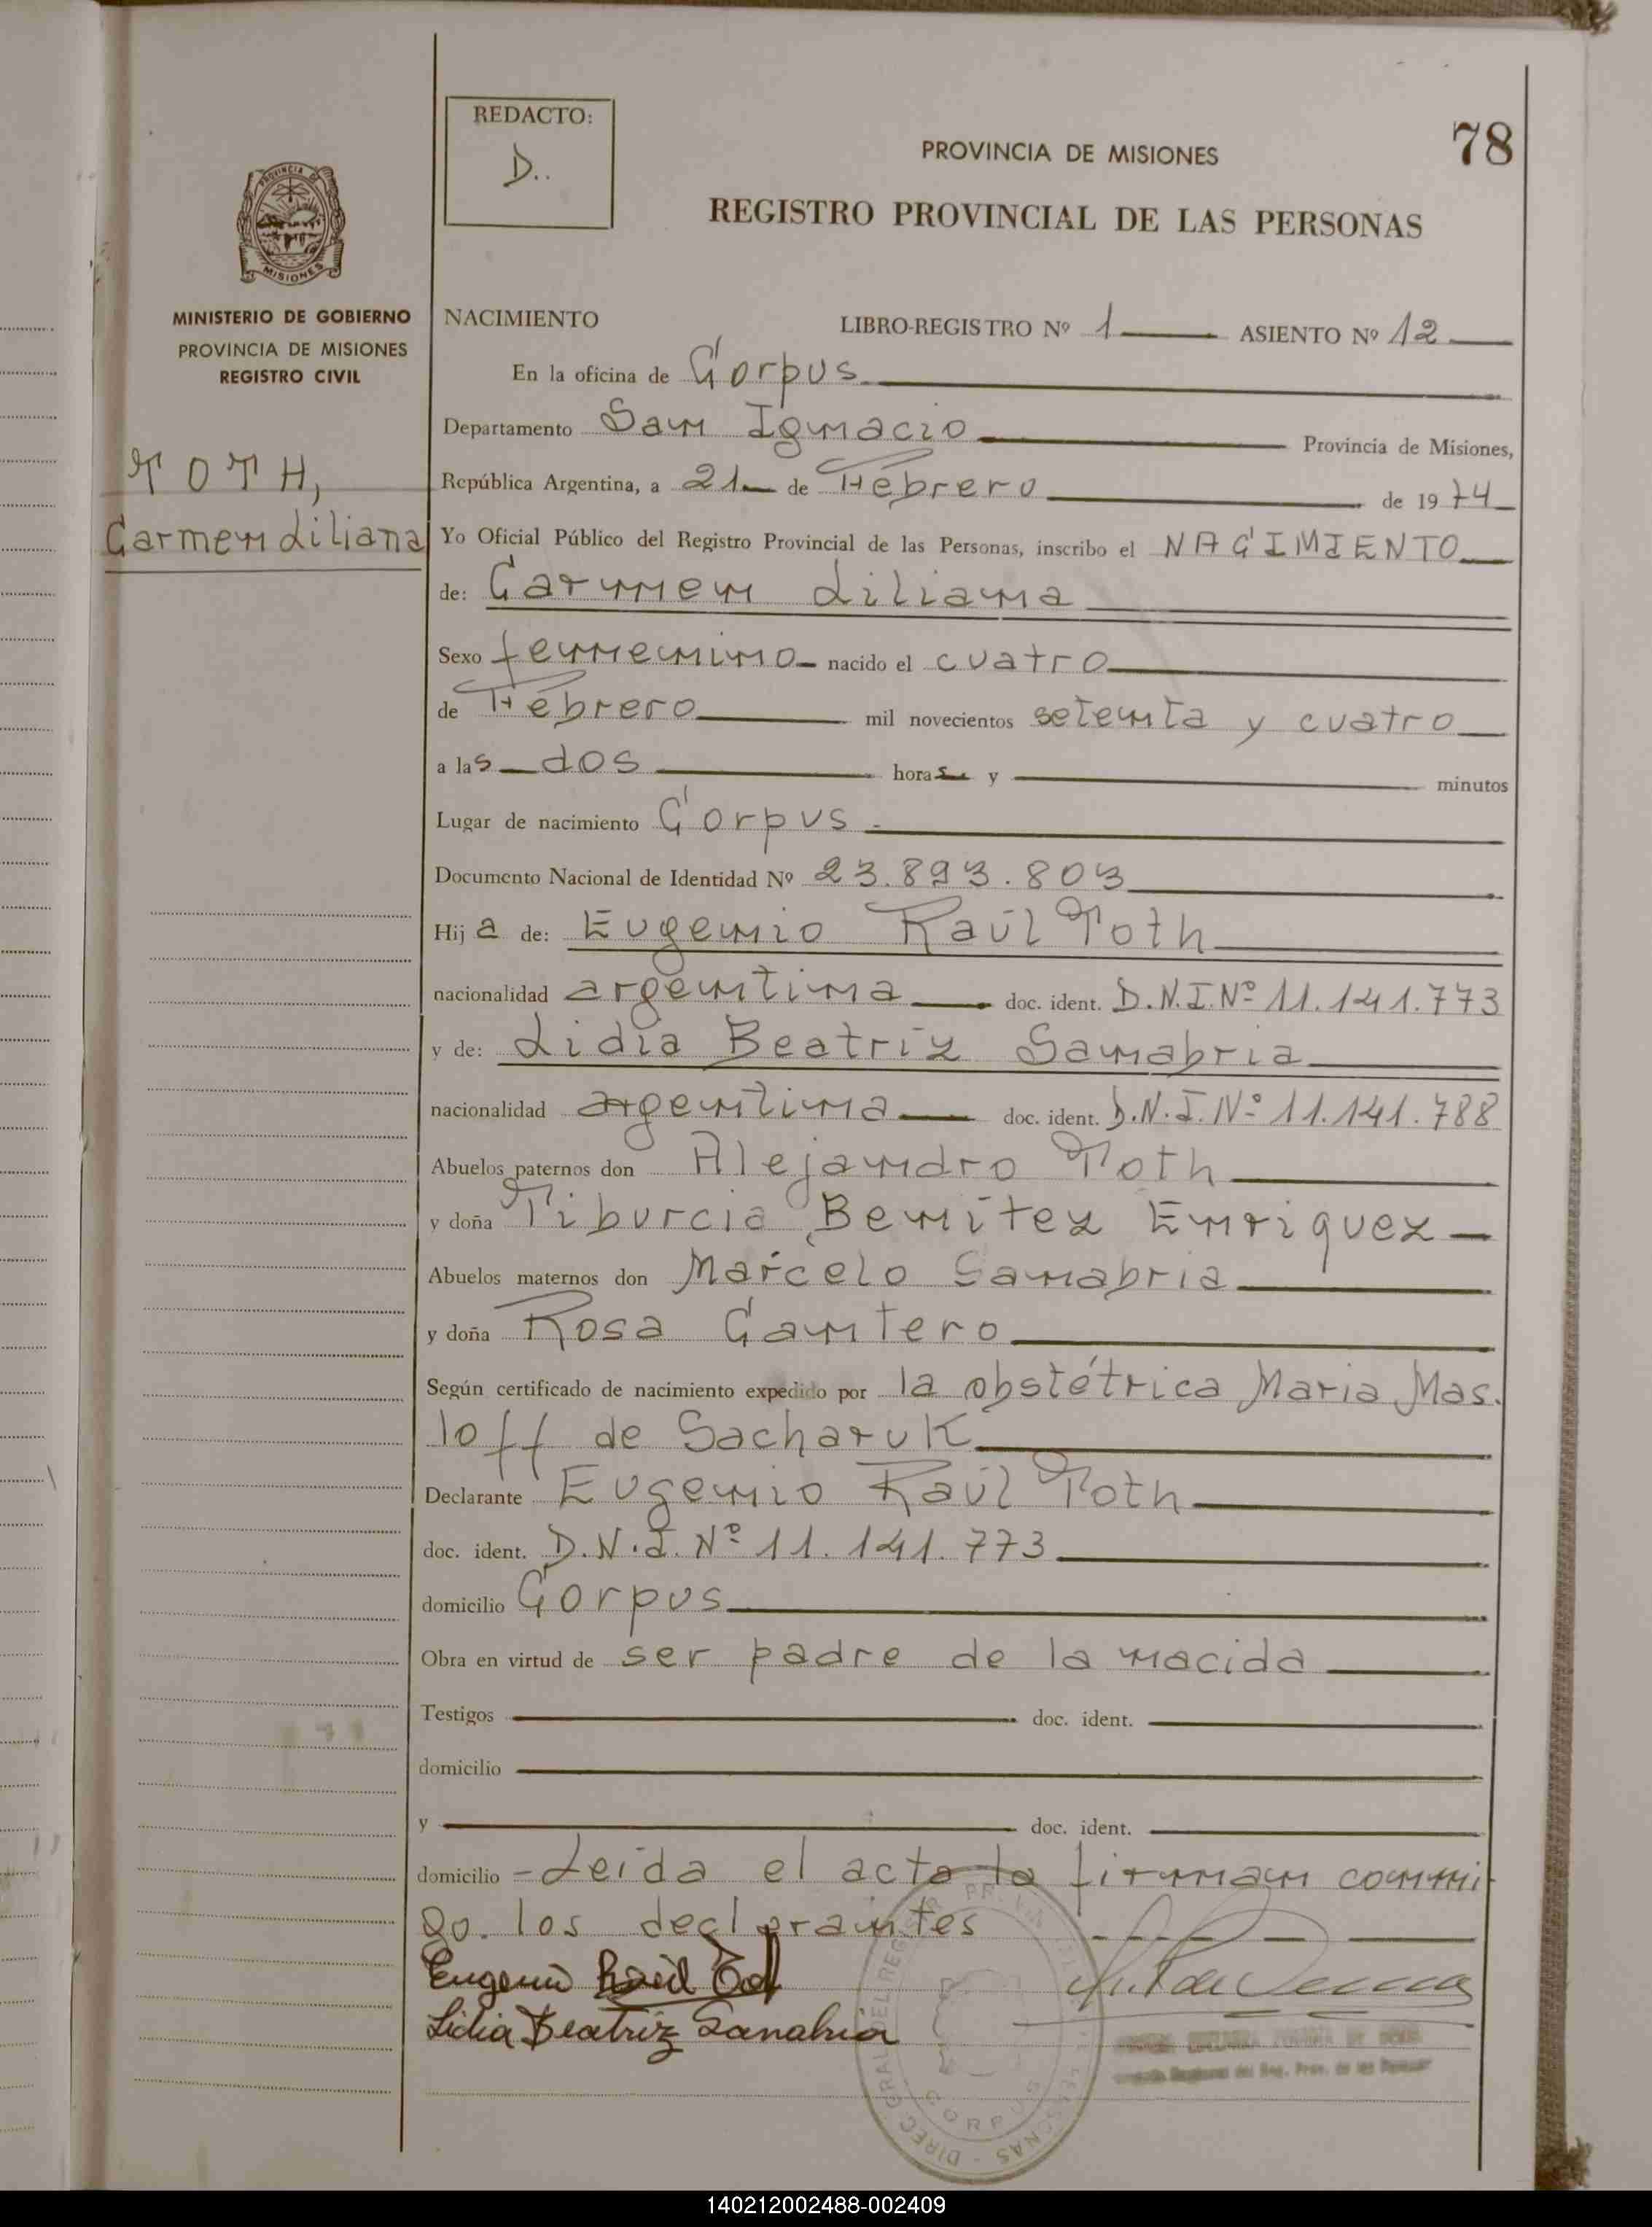 REDACTO:
D..
78
PROVINCIA DE MISIONES
REGISTRO PROVINCIAL DE LAS PERSONAS
PROVINCIA DE
MISIONES
MINISTERIO DE GOBIERNO
PROVINCIA DE MISIONES
REGISTRO CIVIL
TOTH,
Carmen Liliana
NACIMIENTO LIBRO-REGISTRO Nº 1 ASIENTO Nº 12
En la oficina de Corpus
Departamento San Ignacio Provincia de Misiones,
República Argentina, a 21 de Febrero de 1974
Yo Oficial Público del Registro Provincial de las Personas, inscribo el NACIMIENTO
de: Carmen Liliana
Sexo femenino nacido el cuatro
de Febrero mil novecientos setenta y cuatro
a las dos horas y minutos
Lugar de nacimiento Corpus
Documento Nacional de Identidad Nº 23.893.803
Hija de: Eugenio Raúl Toth
nacionalidad argentina doc. ident. D.N.I.Nº 11.141.773
y de: Lidia Beatriz Sanabria
nacionalidad argentina doc. ident. D.N.I.Nº 11.141.788
Abuelos paternos don Alejandro Toth
y doña Tiburcia Benitez Enriquez
Abuelos maternos don Marcelo Sanabria
y doña Rosa Cantero
Según certificado de nacimiento expedido por la obstétrica Maria Mas.
loff de Sacharuk
Declarante Eugenio Raúl Toth
doc. ident. D.N.I.Nº 11.141.773
domicilio Corpus
Obra en virtud de ser padre de la nacida
Testigos doc. ident.
domicilio
y doc. ident.
domicilio - Leida el acta la firman conmi
go. los declarantes
Eugenio Raúl Tot
Lidia Beatriz Sanabria
CORPUS
140212002488-002409